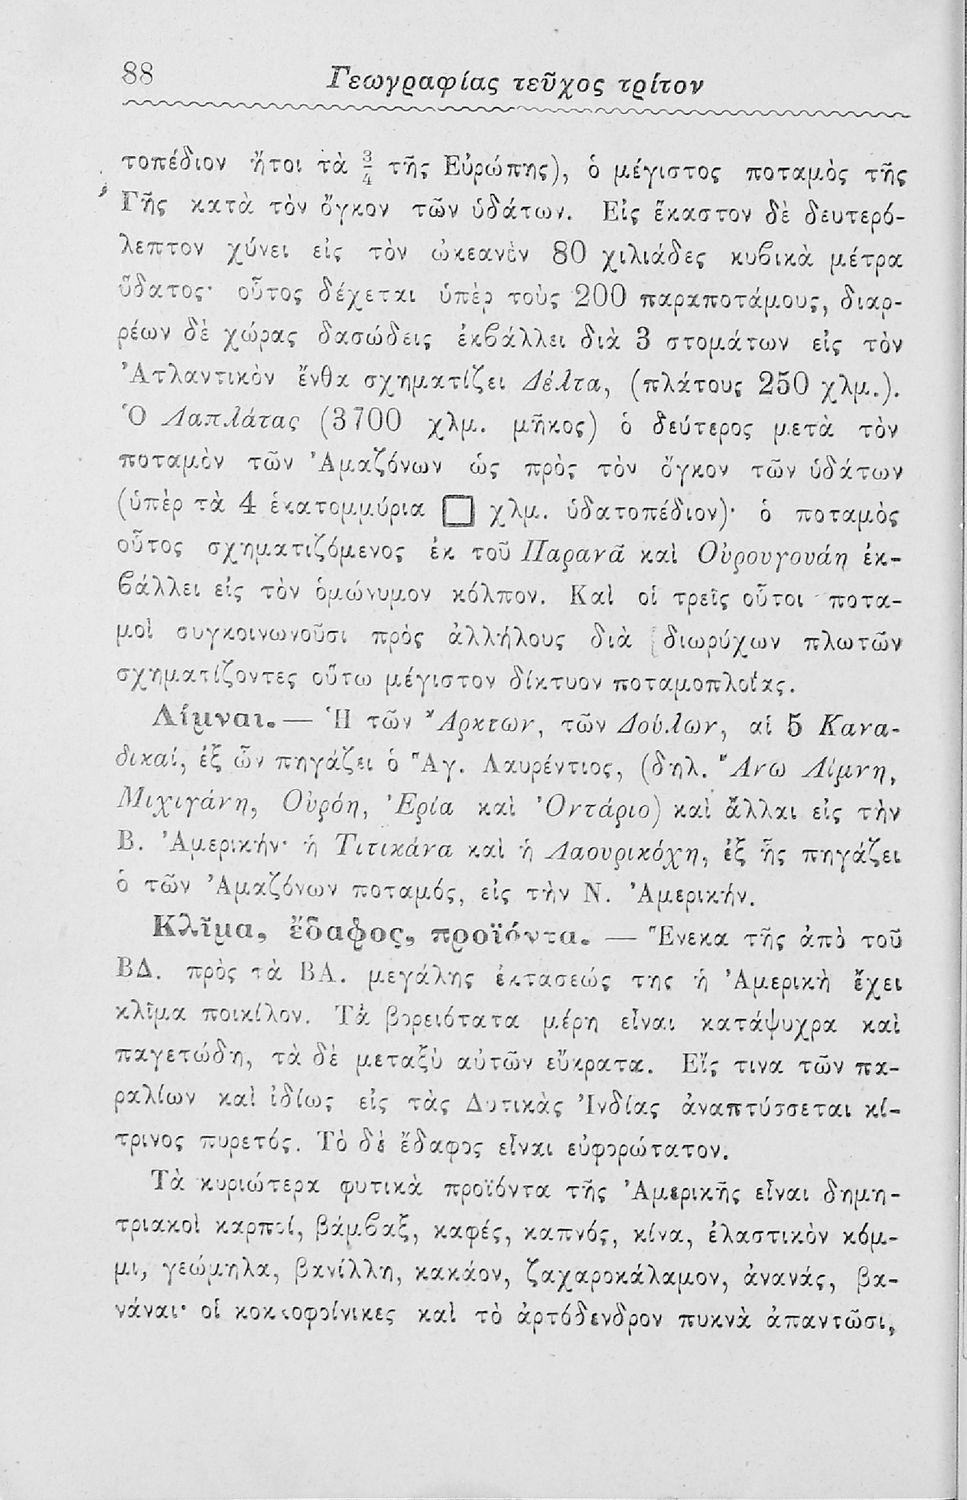 88 Γεωγραφίας τεῦχος τρίτον
τοπέδιον ἤτοι τὰ 3/4 τῆς Εὐρώπης), ὁ μέγιστος ποταμὸς τῆς
Γῆς κατὰ τὸν ὄγκον τῶν ὑδάτων. Εἰς ἕκαστον δὲ δευτερό-
λεπτον χύνει εἰς τὸν ὠκεανὸν 80 χιλιάδες κυβικὰ μέτρα
ὕδατος· οὗτος δέχεται ὑπὲρ τοὺς 200 παραποτάμους, διαρ-
ρέων δὲ χώρας δασώδεις ἐκβάλλει διὰ 3 στομάτων εἰς τὸν
Ἀτλαντικὸν ἔνθα σχηματίζει Δέλτα, (πλάτους 250 χλμ.).
Ὁ Λαπλάτας (3700 χλμ. μῆκος) ὁ δεύτερος μετὰ τὸν
ποταμὸν τῶν Ἀμαζόνων ὡς πρὸς τὸν ὄγκον τῶν ὑδάτων
(ὑπὲρ τὰ 4 ἑκατομμύρια □ χλμ. ὑδατοπέδιον)· ὁ ποταμὸς
οὗτος σχηματιζόμενος ἐκ τοῦ Παρανᾶ καὶ Οὐρουγουάη ἐκ-
βάλλει εἰς τὸν ὁμώνυμον κόλπον. Καὶ οἱ τρεῖς οὗτοι ποτα-
μοὶ συγκοινωνοῦσι πρὸς ἀλλήλους διὰ διωρύχων πλωτῶν
σχηματίζοντες οὕτω μέγιστον δίκτυον ποταμοπλοΐας.
Λίμναι. — Ἡ τῶν Ἄρκτων, τῶν Δούλων, αἱ 5 Κανα-
δικαί, ἐξ ὧν πηγάζει ὁ Ἅγ. Λαυρέντιος, (δηλ. Ἄνω Λίμνη,
Μιχιγάνη, Οὐρόη, Ἐρία καὶ Ὀντάριο) καὶ ἄλλαι εἰς τὴν
Β. Ἀμερικήν· ἡ Τιτικάνα καὶ ἡ Λαουρικόχη, ἐξ ἧς πηγάζει
ὁ τῶν Ἀμαζόνων ποταμός, εἰς τὴν Ν. Ἀμερικήν.
Κλῖμα, ἔδαφος, προϊόντα. — Ἕνεκα τῆς ἀπὸ τοῦ
ΒΔ. πρὸς τὰ ΒΑ. μεγάλης ἐκτάσεώς της ἡ Ἀμερικὴ ἔχει
κλῖμα ποικίλον. Τὰ βορειότατα μέρη εἶναι κατάψυχρα καὶ
παγετώδη, τὰ δὲ μεταξὺ αὐτῶν εὔκρατα. Εἴς τινα τῶν πα-
ραλίων καὶ ἰδίως εἰς τὰς Δυτικὰς Ἰνδίας ἀναπτύσσεται κί-
τρινος πυρετός. Τὸ δὲ ἔδαφος εἶναι εὐφορώτατον.
Τὰ κυριώτερα φυτικὰ προϊόντα τῆς Ἀμερικῆς εἶναι δημη-
τριακοὶ καρποί, βάμβαξ, καφές, καπνός, κίνα, ἐλαστικὸν κόμ-
μι, γεώμηλα, βανίλλη, κακάον, ζαχαροκάλαμον, ἀνανάς, βα-
νάναι· οἱ κοκκοφοίνικες καὶ τὸ ἀρτόδενδρον πυκνὰ ἀπαντῶσι,